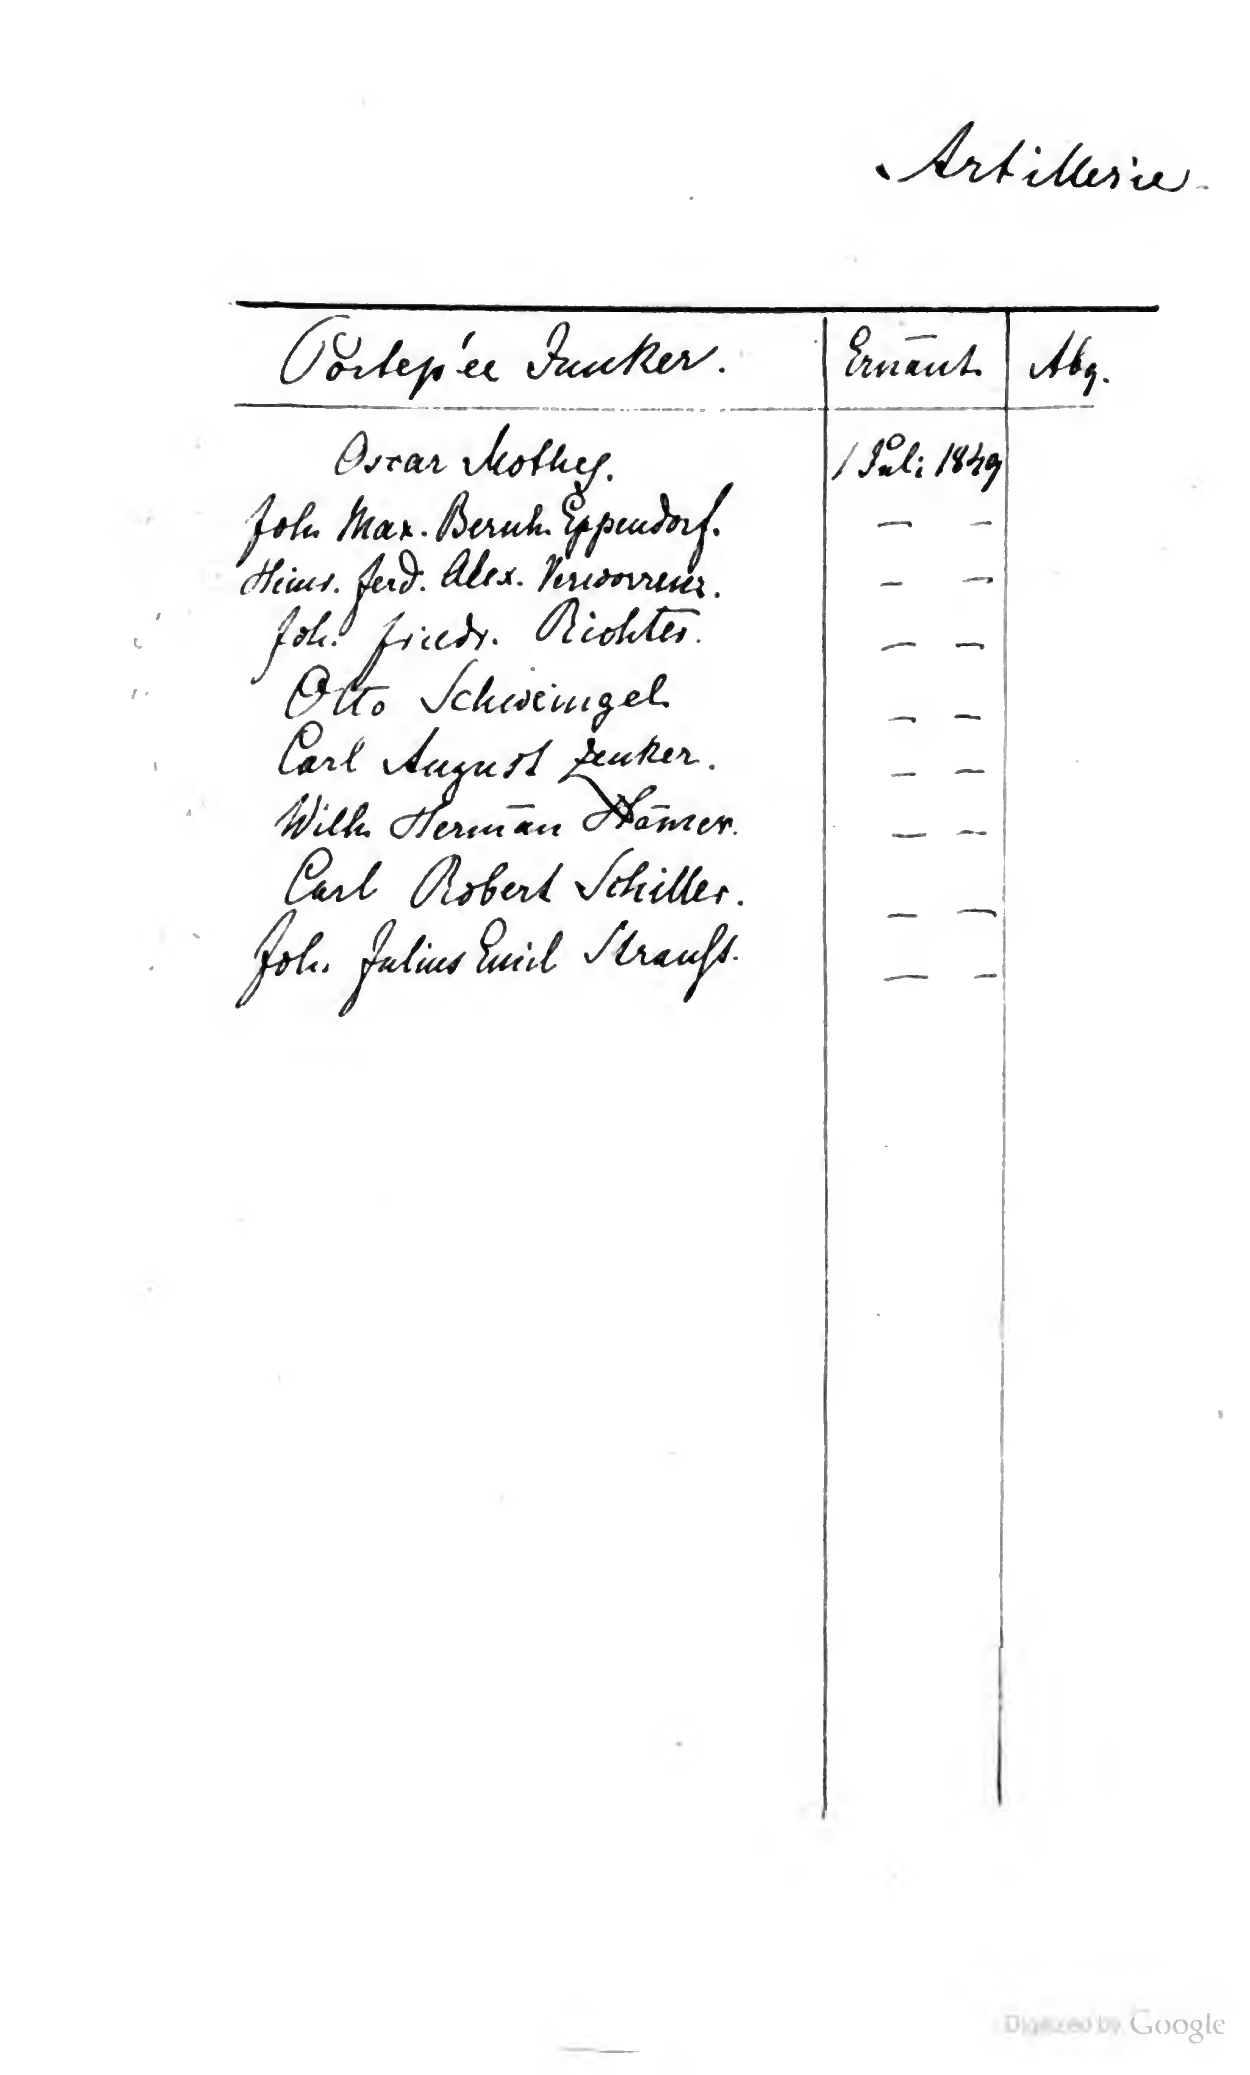 Artillerie.
Portepée Junker. Ernañt. Abg.
Oscar Mothes. 1 Juli 1849
Joh. Max. Bernh. Eppendorf. — —
Ferd. Alex. — —
Joh. Friedr. Richter. — —
Otto Schweingel. — —
Carl August Zenker. — —
Wilh. Hermañ — —
Carl Robert Schiller. — —
Joh. Julius Emil Strauß. — —
Digitized by Google